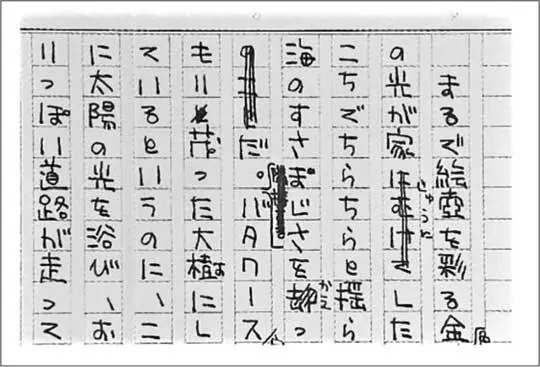 まるで絵壺を彩る金
の光が家した
こちでちらちらと揺ら
海のすさじさをっ
だ。バタワース
もり茂った大樹にし
ているというのに、こ
に太陽の光を浴び、お
りっぽい道路が走って